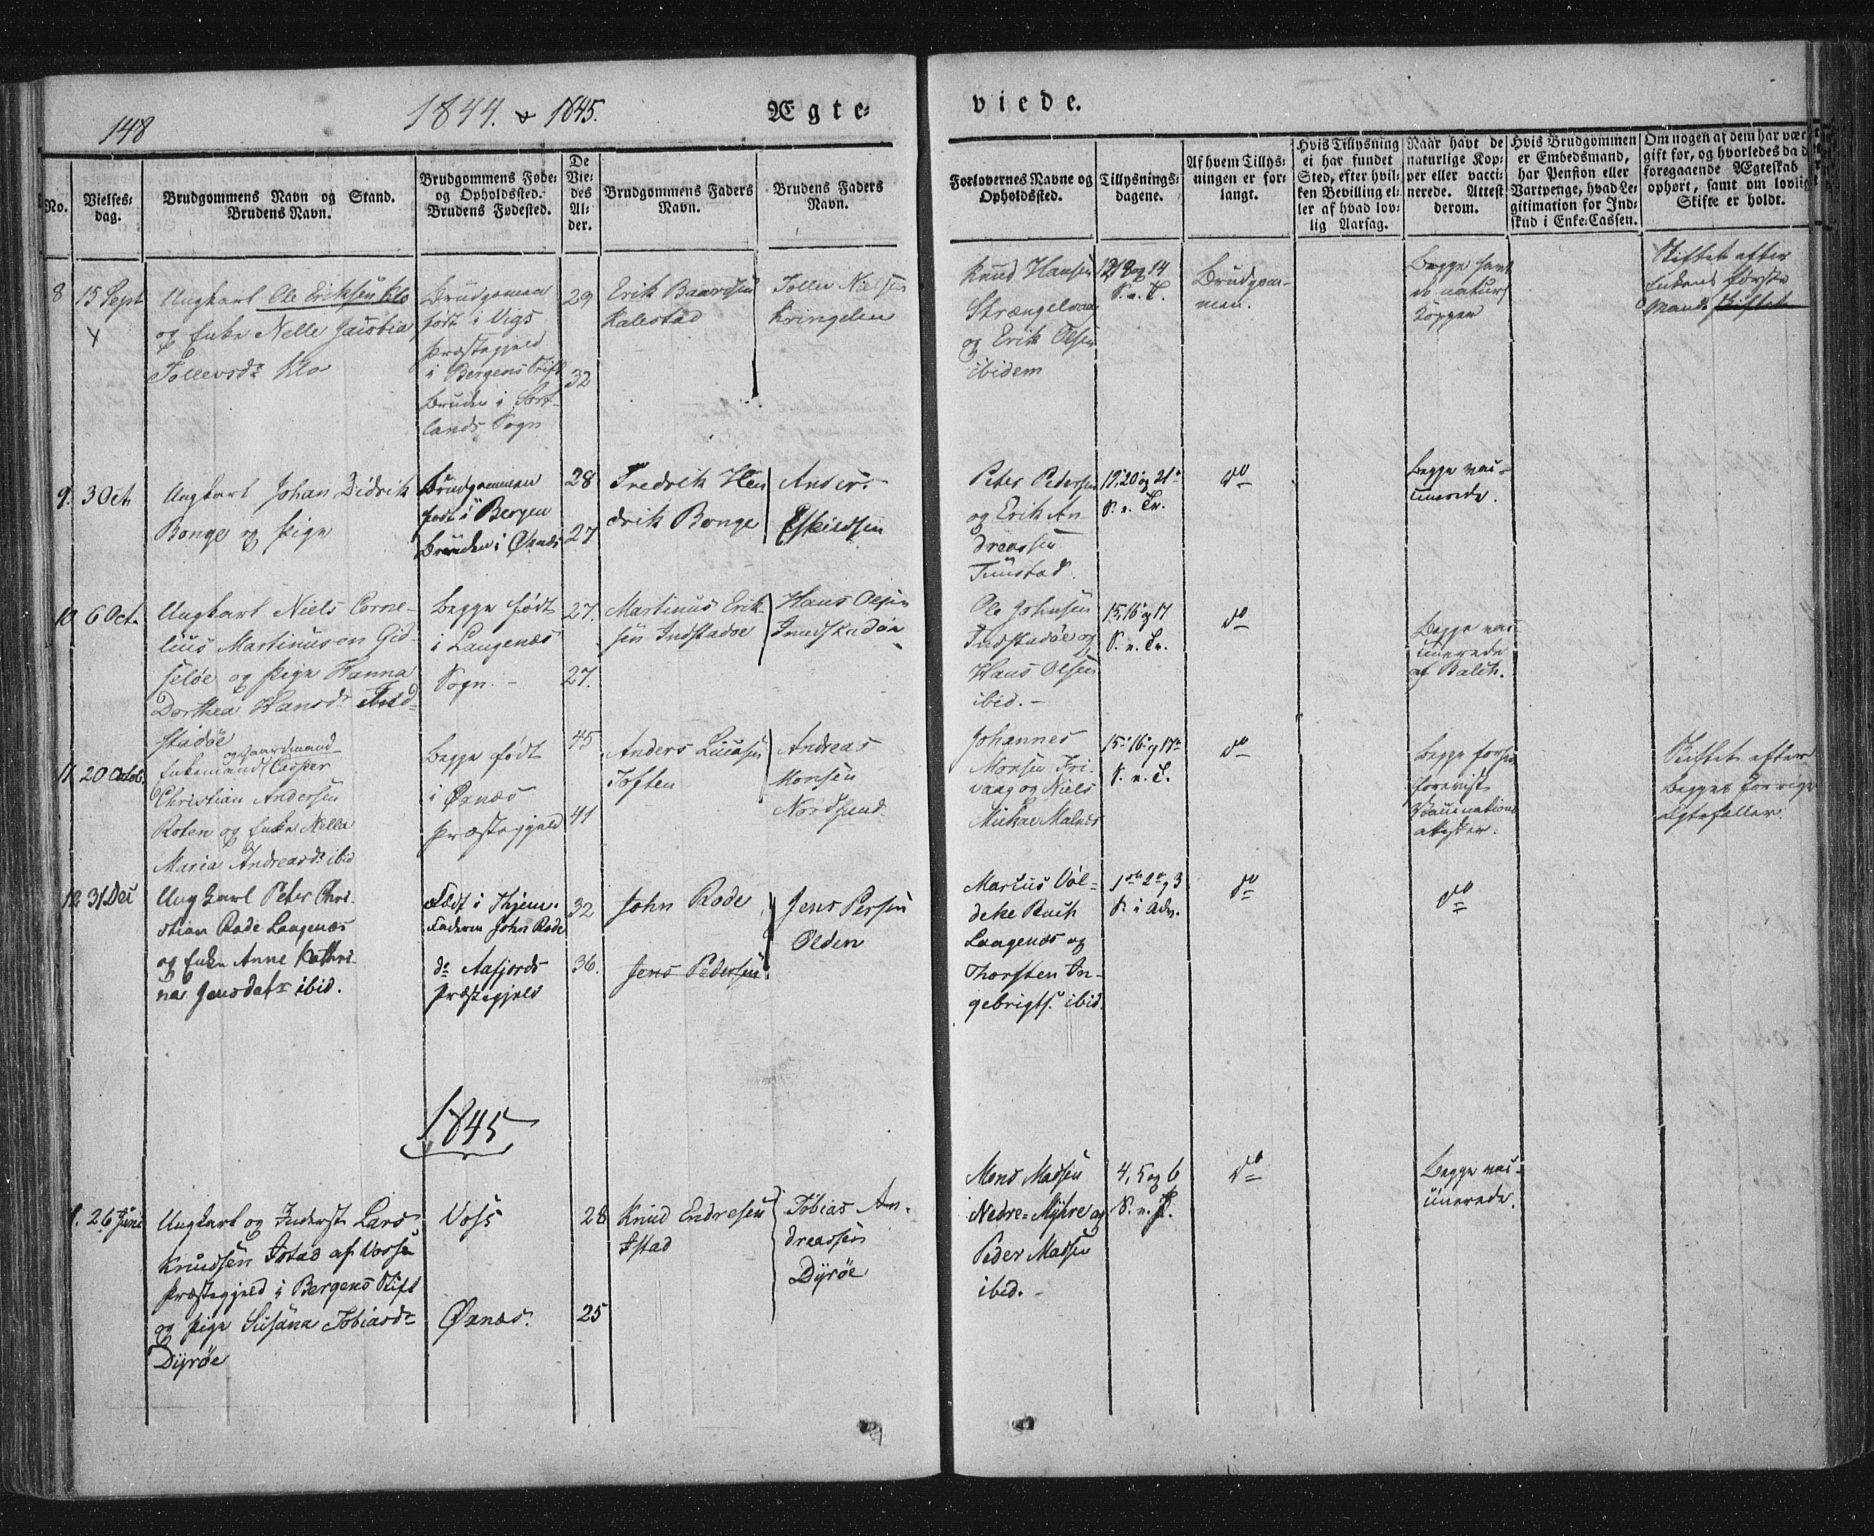 148
1844. & 1845.
Ægte-
viede.
No.
Vielses-
dag.
Brudgommens Navn og Stand.
Brudens Navn.
Brudgommens Føde-
og Opholdssted.
Brudens Fødested.
De
Vie-
des
Al-
der.
Brudgommens Faders
Navn.
Brudens Faders
Navn.
Forlovernes Navne og
Opholdssted.
Tillysnings-
dagene.
Af hvem Tillys-
ningen er for-
langt.
Hvis Tillysning
ei har fundet
Sted, efter hvil-
ken Bevilling el-
ler af hvad lov-
lig Aarsag.
Naar havt de
naturlige Kop-
per eller vacci-
nerede. Attest
derom.
Hvis Brudgommen
er Embedsmand,
har Pension eller
Vartpenge, hvad Le-
gitimation for Ind-
skud i Enke-Cassen.
Om nogen af dem har vær
gift før, og hvorledes da d
foregaaende Ægteskab
ophørt, samt om lovlig
Skifte er holdt.
8
15 Sept
Ungkarl Ole Eriksen Klo
og Enke Nelle Jacobia
Tollevsdr Klo
Brudgommen
født i Vigs
Præstegjeld
i Bergens Stift
Bruden i Sort-
lands Sogn
29
32
Erik Baardsen
Kalestad
Tollev Nielsen
Kringelen
Knud Hansen
Strængelvaag
og Erik Olsen
ibidem
12 13 og 14
S. e. T.
Brudgom-
men.
Begge havt
de naturl
Kopper
Skiftet efter
Enkens første
Mand
9.
3 Oct.
Ungkarl Johan Didrik
Bonge og Pige
Brudgommen
født i Bergen
Bruden i Øxnæs
28
27
Fredrik Hen
drik Bonge
Anders
Eskildsen
Peter Pedersen
og Erik An
dreassen
Tunstad.
19 20 og 21de
S. e. Tr.
do
Begge vac-
cinerede.
10
6 Oct.
Ungkarl Niels Corne-
lius Martinusen Gid
seløe og Pige Hanna
Dorthea Hansdr Ind-
stadøe
Begge født
i Langenæs
Sogn. -
27.
27.
Martinus Erik-
sen Indstadøe
Hans Olsen
Indstadøe
Ole Johnsen
Indstadøe og
Hans Olsen
ibid. -
15, 16 og 17
S. e. Tr.
do
Begge vac-
cinerede
af Balch.
11.
20 Octob.
og Gaardmand
Enkemand Casper
Christian Andersen
Roten og Enke Nella
Maria Andreasdr ibid
Begge født
i Øxnæs
Præstegjeld
45
41
Anders Lucasen
Toften
Andreas
Monsen
Nordsand
Johannes
Monsen
og Niels
Malnes
15 16 og 17de
S. e. T.
do
Begge
forevist
Vaccinations
attester.
Skiftet efter
Begges forrige
Egtefæller.
12.
31 Dec
Ungkarl Peter Chri-
stian Rode Langenæs
og Enke Anne Kathri-
na Jensdatr ibid.
Født i Hjem.
Faderen John Rode
do Aafjords
Præstegjeld
32
36.
John Rode
Jens Pedersen
Jens Persen
Olden
Marcus Vol-
deke Buch
Langenæs og
Thorsten In-
gebrigts. ibid.
1ste 2 og 3
S. i Adv.
do
do
1845
1.
26 Juni
Ungkarl og Inderst Lars
Knudsen Istad af Vosse
Præstegjeld i Bergens Stift
og Pige Susana Tobiasdr
Dyrøe
Voss
Øxnæs.
28
25
Knud Endresen
Istad
Tobias An-
dreassen
Dyrøe
Mons Madsen
Nedre-Myhre og
Peder Madsen
ibid. -
4, 5 og 6
S. e. P.
do
Begge vac-
cinerede.